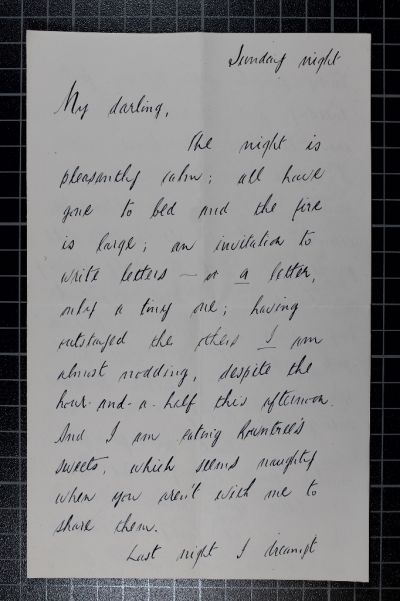 Sunday night
My darling,
The night is
pleasantly calm; all have
gone to bed and the fire
is large; an invitation to
write letters – or a letter,
only a tiny one; having
outstayed the others I am
almost nodding, despite the
hour-and-a-half this afternoon.
And I am eating Rowntree's
sweets, which seems naughty
when you aren't with me to
share them.
Last night I dreamt